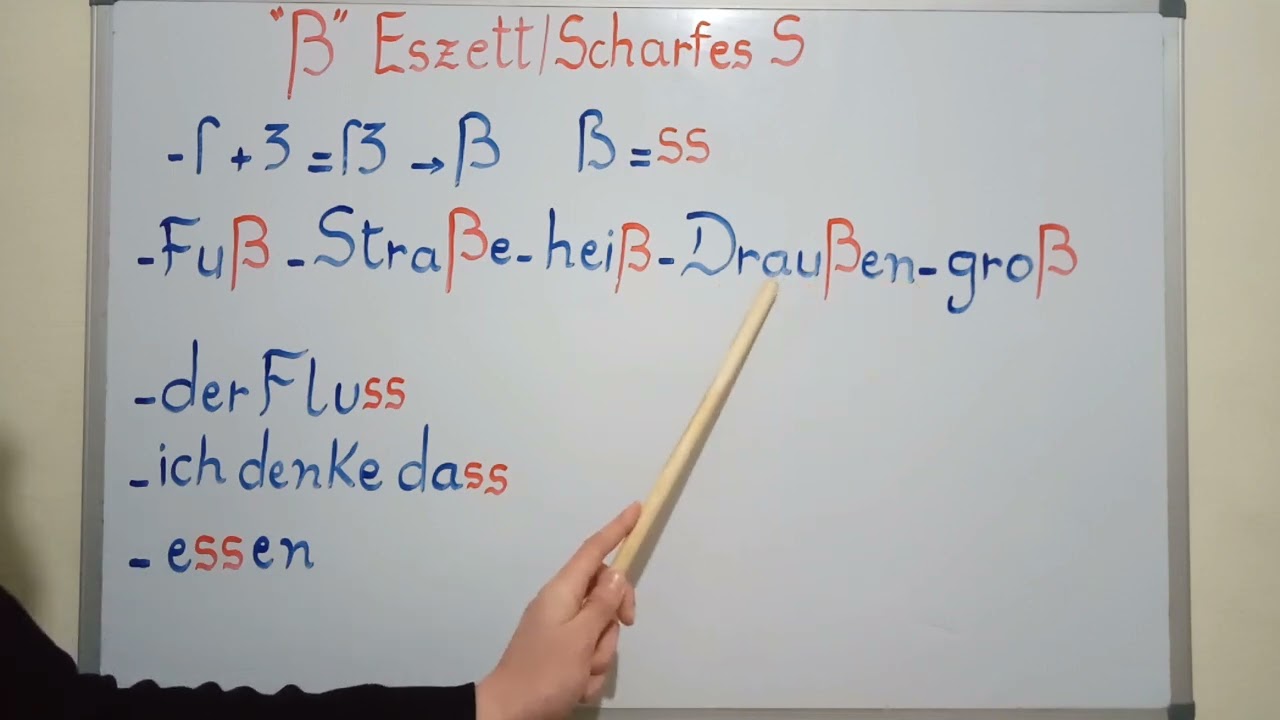 "ß" Eszett/Scharfes S
-ſ + ʒ = ſʒ → ß ß = ss
-Fuß - Straße - heiß - Draußen - groß
- der Fluss
- ich denke dass
- essen